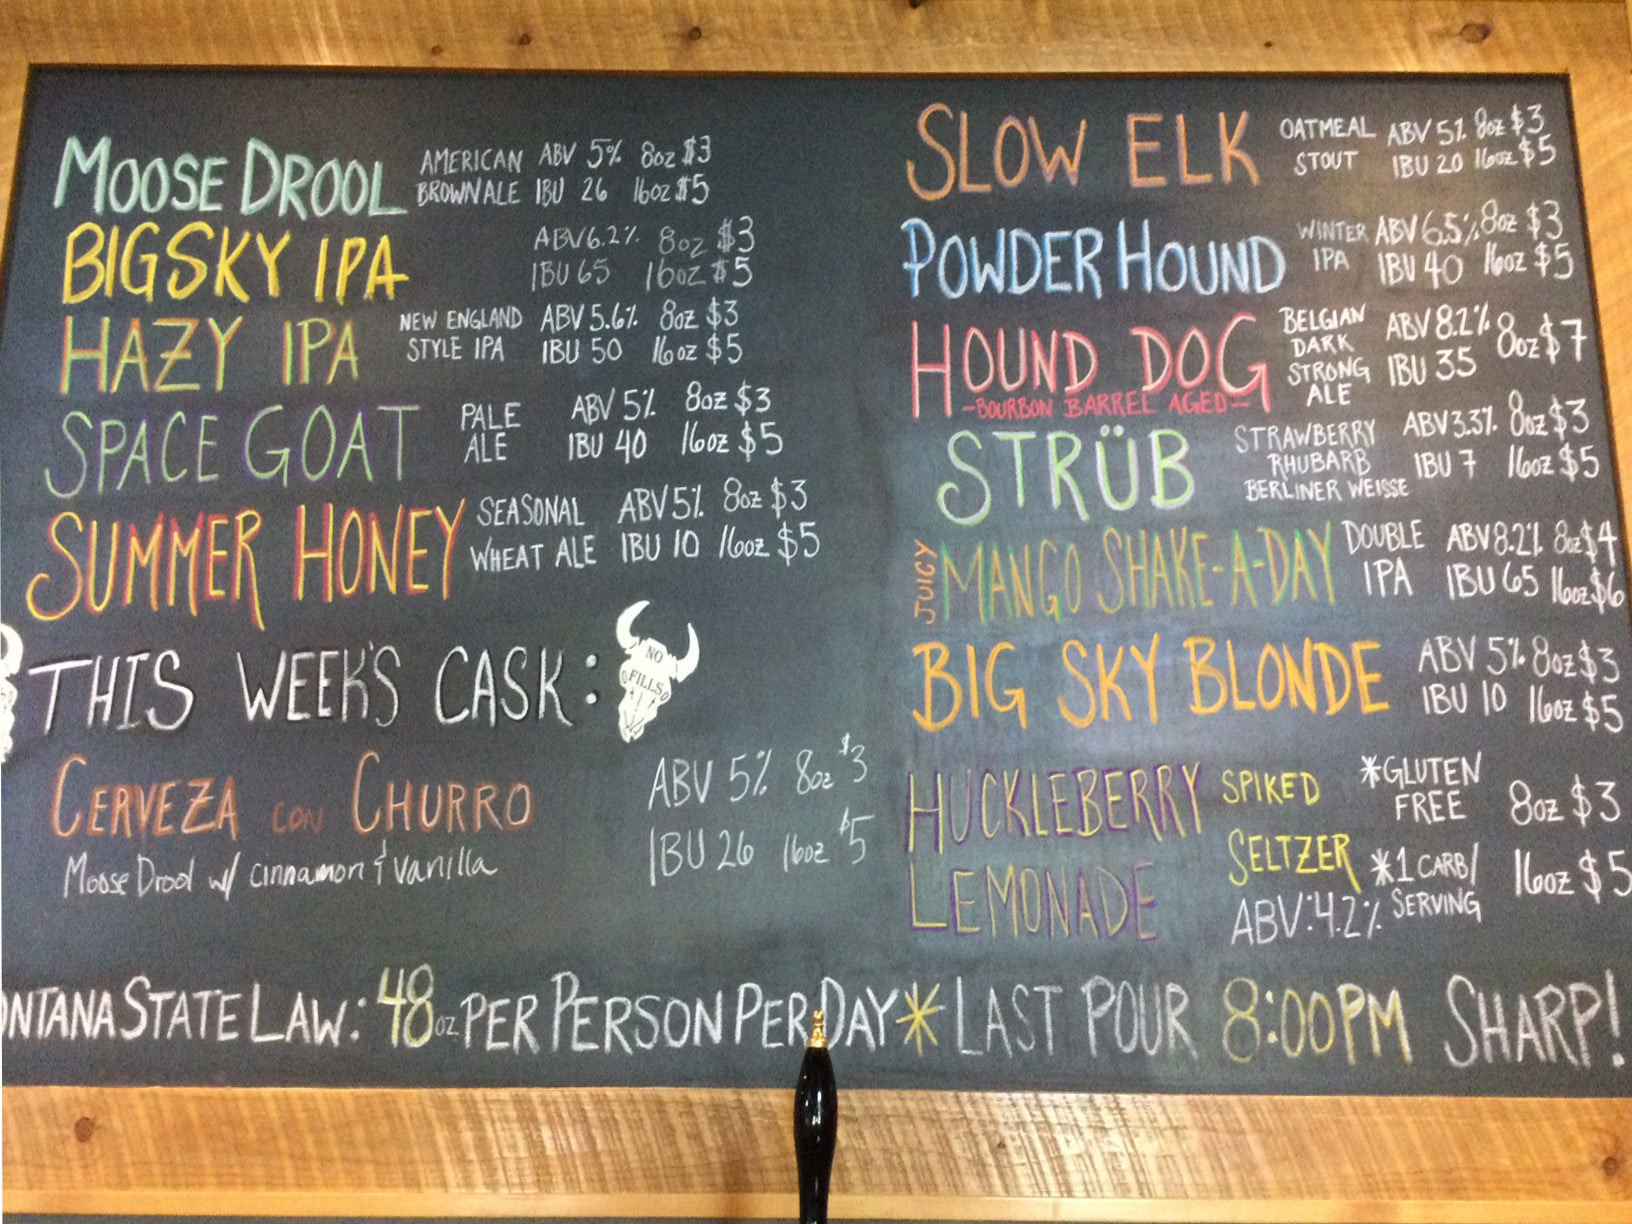 MOOSE DROOL AMERICAN BROWN ALE ABV 5% 8oz $3
IBU 26 16oz $5
BIG SKY IPA ABV 6.2% 8oz $3
IBU 65 16oz $5
HAZY IPA NEW ENGLAND STYLE IPA ABV 5.6% 8oz $3
IBU 50 16oz $5
SPACE GOAT PALE ALE ABV 5% 8oz $3
IBU 40 16oz $5
SUMMER HONEY SEASONAL WHEAT ALE ABV 5% 8oz $3
IBU 10 16oz $5
THIS WEEK'S CASK:
NO
FILLS
CERVEZA CON CHURRO ABV 5% 8oz $3
IBU 26 16oz $5
Moose Drool w/ cinnamon & vanilla
SLOW ELK OATMEAL STOUT ABV 5% 8oz $3
IBU 20 16oz $5
POWDER HOUND WINTER IPA ABV 6.5% 8oz $3
IBU 40 16oz $5
HOUND DOG BELGIAN DARK STRONG ALE ABV 8.2% 8oz $7
IBU 35
-BOURBON BARREL AGED-
STRÜB STRAWBERRY RHUBARB BERLINER WEISSE ABV 3.3% 8oz $3
IBU 7 16oz $5
JUICY MANGO SHAKE-A-DAY DOUBLE IPA ABV 8.2% 8oz $4
IBU 65 16oz $6
BIG SKY BLONDE ABV 5% 8oz $3
IBU 10 16oz $5
HUCKLEBERRY SPIKED *GLUTEN FREE 8oz $3
LEMONADE SELTZER *1 CARB/ SERVING 16oz $5
ABV: 4.2%
ONTANA STATE LAW: 48oz PER PERSON PER DAY * LAST POUR 8:00PM SHARP!